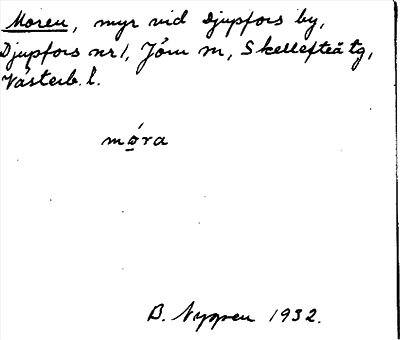 Moren, myr vid Djupfors by,
Djupfors nr 1, Jörn sn, Skellefteå tg,
Västerb. l.
móra
B. Nygren 1932.